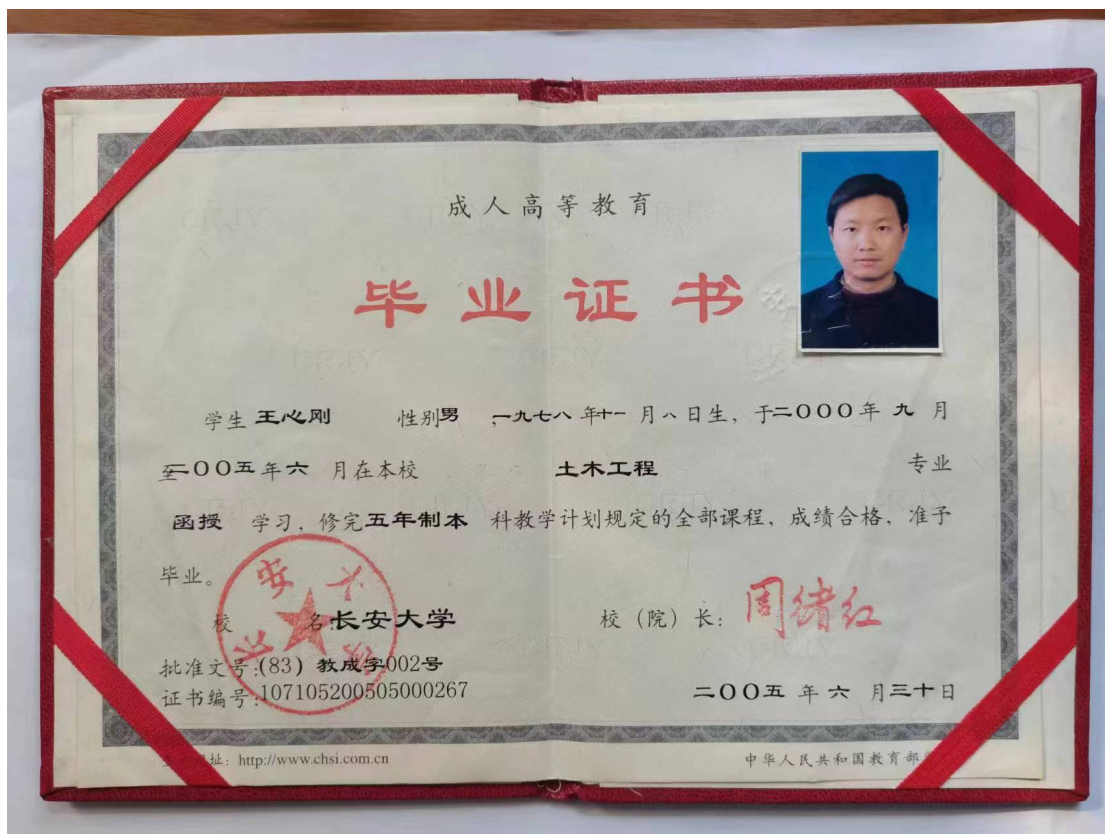 成人高等教育
毕业证书
学生 王心刚 性别男 ,一九七八年十一月八日生，于二〇〇〇年九月
至二〇〇五年六月在本校 土木工程 专业
函授 学习，修完五年制本 科教学计划规定的全部课程，成绩合格，准予
毕业。
校 名:长安大学 校（院）长：周绪红
批准文号:(83) 教成字002号
证书编号:107105200505000267 二〇〇五年六月三十日
址：http://www.chsi.com.cn 中华人民共和国教育部
长安大学